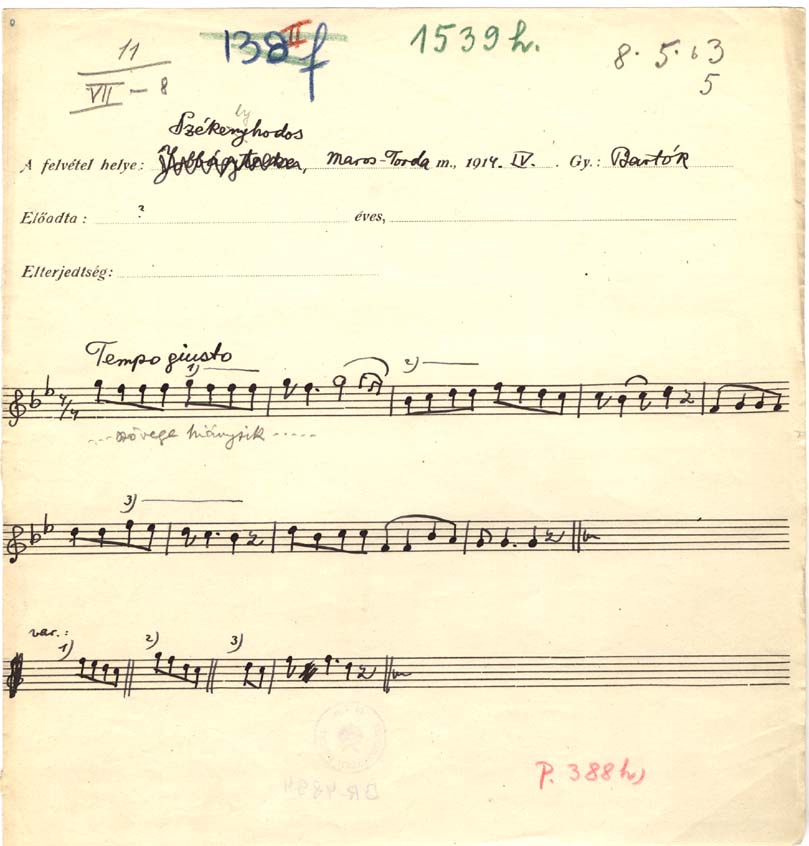 11
VII - 8
138 II f
1539 h.
8. 5. b 3
5
ly
Székenyhodos
A felvétel helye: Jobbágytelke, Maros-Torda m., 1914. IV. . Gy.: Bartók
Előadta: ? éves,
Elterjedtség:
Tempo giusto
1) 2)
szövege hiányzik
3)
var.:
1) 2) 3)
P. 388 h)